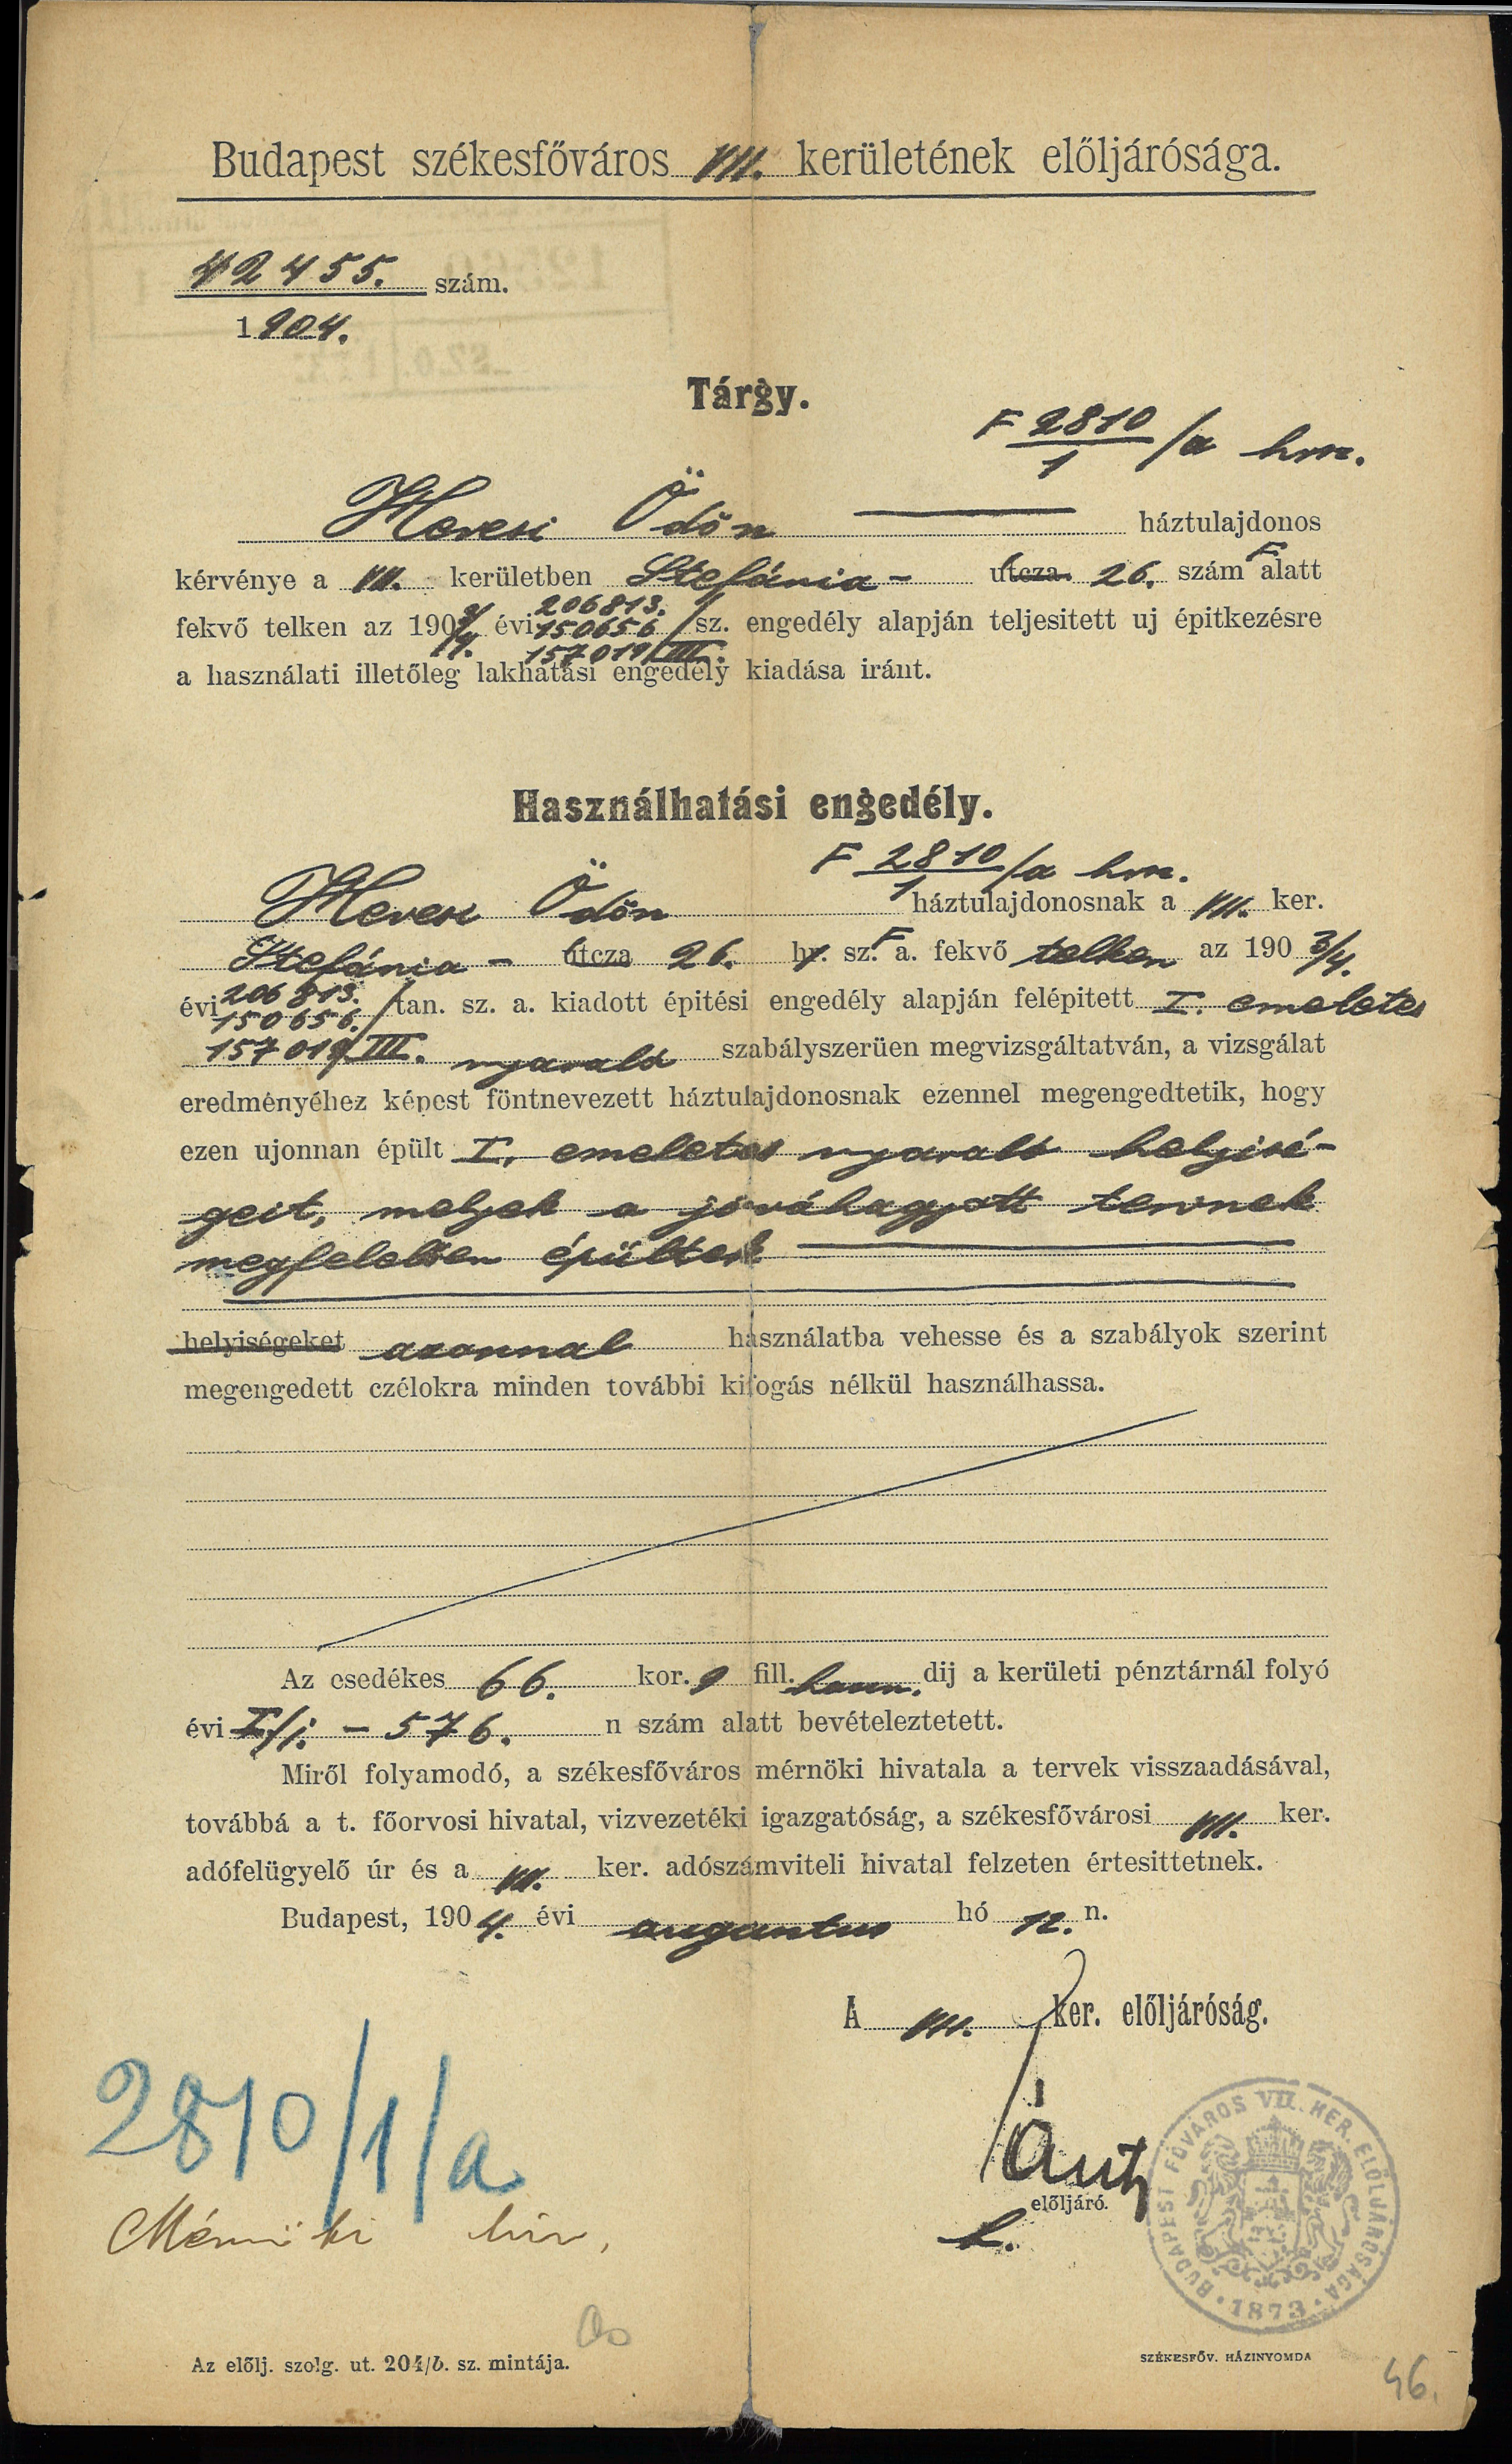 Budapest székesfőváros VII. kerületének előljárósága.
42455. szám.
1904.
Tárgy.
F 2810/1/a hrsz.
Hevesi Ödön háztulajdonos
kérvénye a VII. kerületben Stefánia- utcza 26. szám alatt
206813.
fekvő telken az 1903/4. évi 150656/sz. engedély alapján teljesitett uj épitkezésre
157019/III.
a használati illetőleg lakhatási engedély kiadása iránt.
Használhatási engedély.
F 2810/1/a hrsz.
Hevesi Ödön háztulajdonosnak a VII. ker.
Stefánia - utcza 26. hr. sz. F a. fekvő telken az 190 3/4.
206813.
évi 150656./tan. sz. a. kiadott épitési engedély alapján felépitett I. emeletes
157019/III. nyaraló szabályszerüen megvizsgáltatván, a vizsgálat
eredményéhez képest föntnevezett háztulajdonosnak ezennel megengedtetik, hogy
ezen ujonnan épült I. emeletes nyaraló helyisé-
geit, melyek a jóváhagyott tervnek
megfelelően épültek
helyiségeket azonnal használatba vehesse és a szabályok szerint
megengedett czélokra minden további kifogás nélkül használhassa.
Az esedékes 66. kor. 9 fill. haszn. dij a kerületi pénztárnál folyó
évi I/j. - 576. n szám alatt bevételeztetett.
Miről folyamodó, a székesfőváros mérnöki hivatala a tervek visszaadásával,
továbbá a t. főorvosi hivatal, vizvezetéki igazgatóság, a székesfővárosi VII. ker.
adófelügyelő úr és a VII. ker. adószámviteli hivatal felzeten értesittetnek.
Budapest, 1904. évi augusztus hó 12. n.
A VII. ker. előljáróság.
előljáró.
h.
BUDAPEST FŐVÁROS VII. KER. ELŐLJÁRÓSÁGA
1873
2810/1/a
Mérnöki hiv.
Az előlj. szolg. ut. 204/b. sz. mintája.
SZÉKESFŐV. HÁZINYOMDA
46.